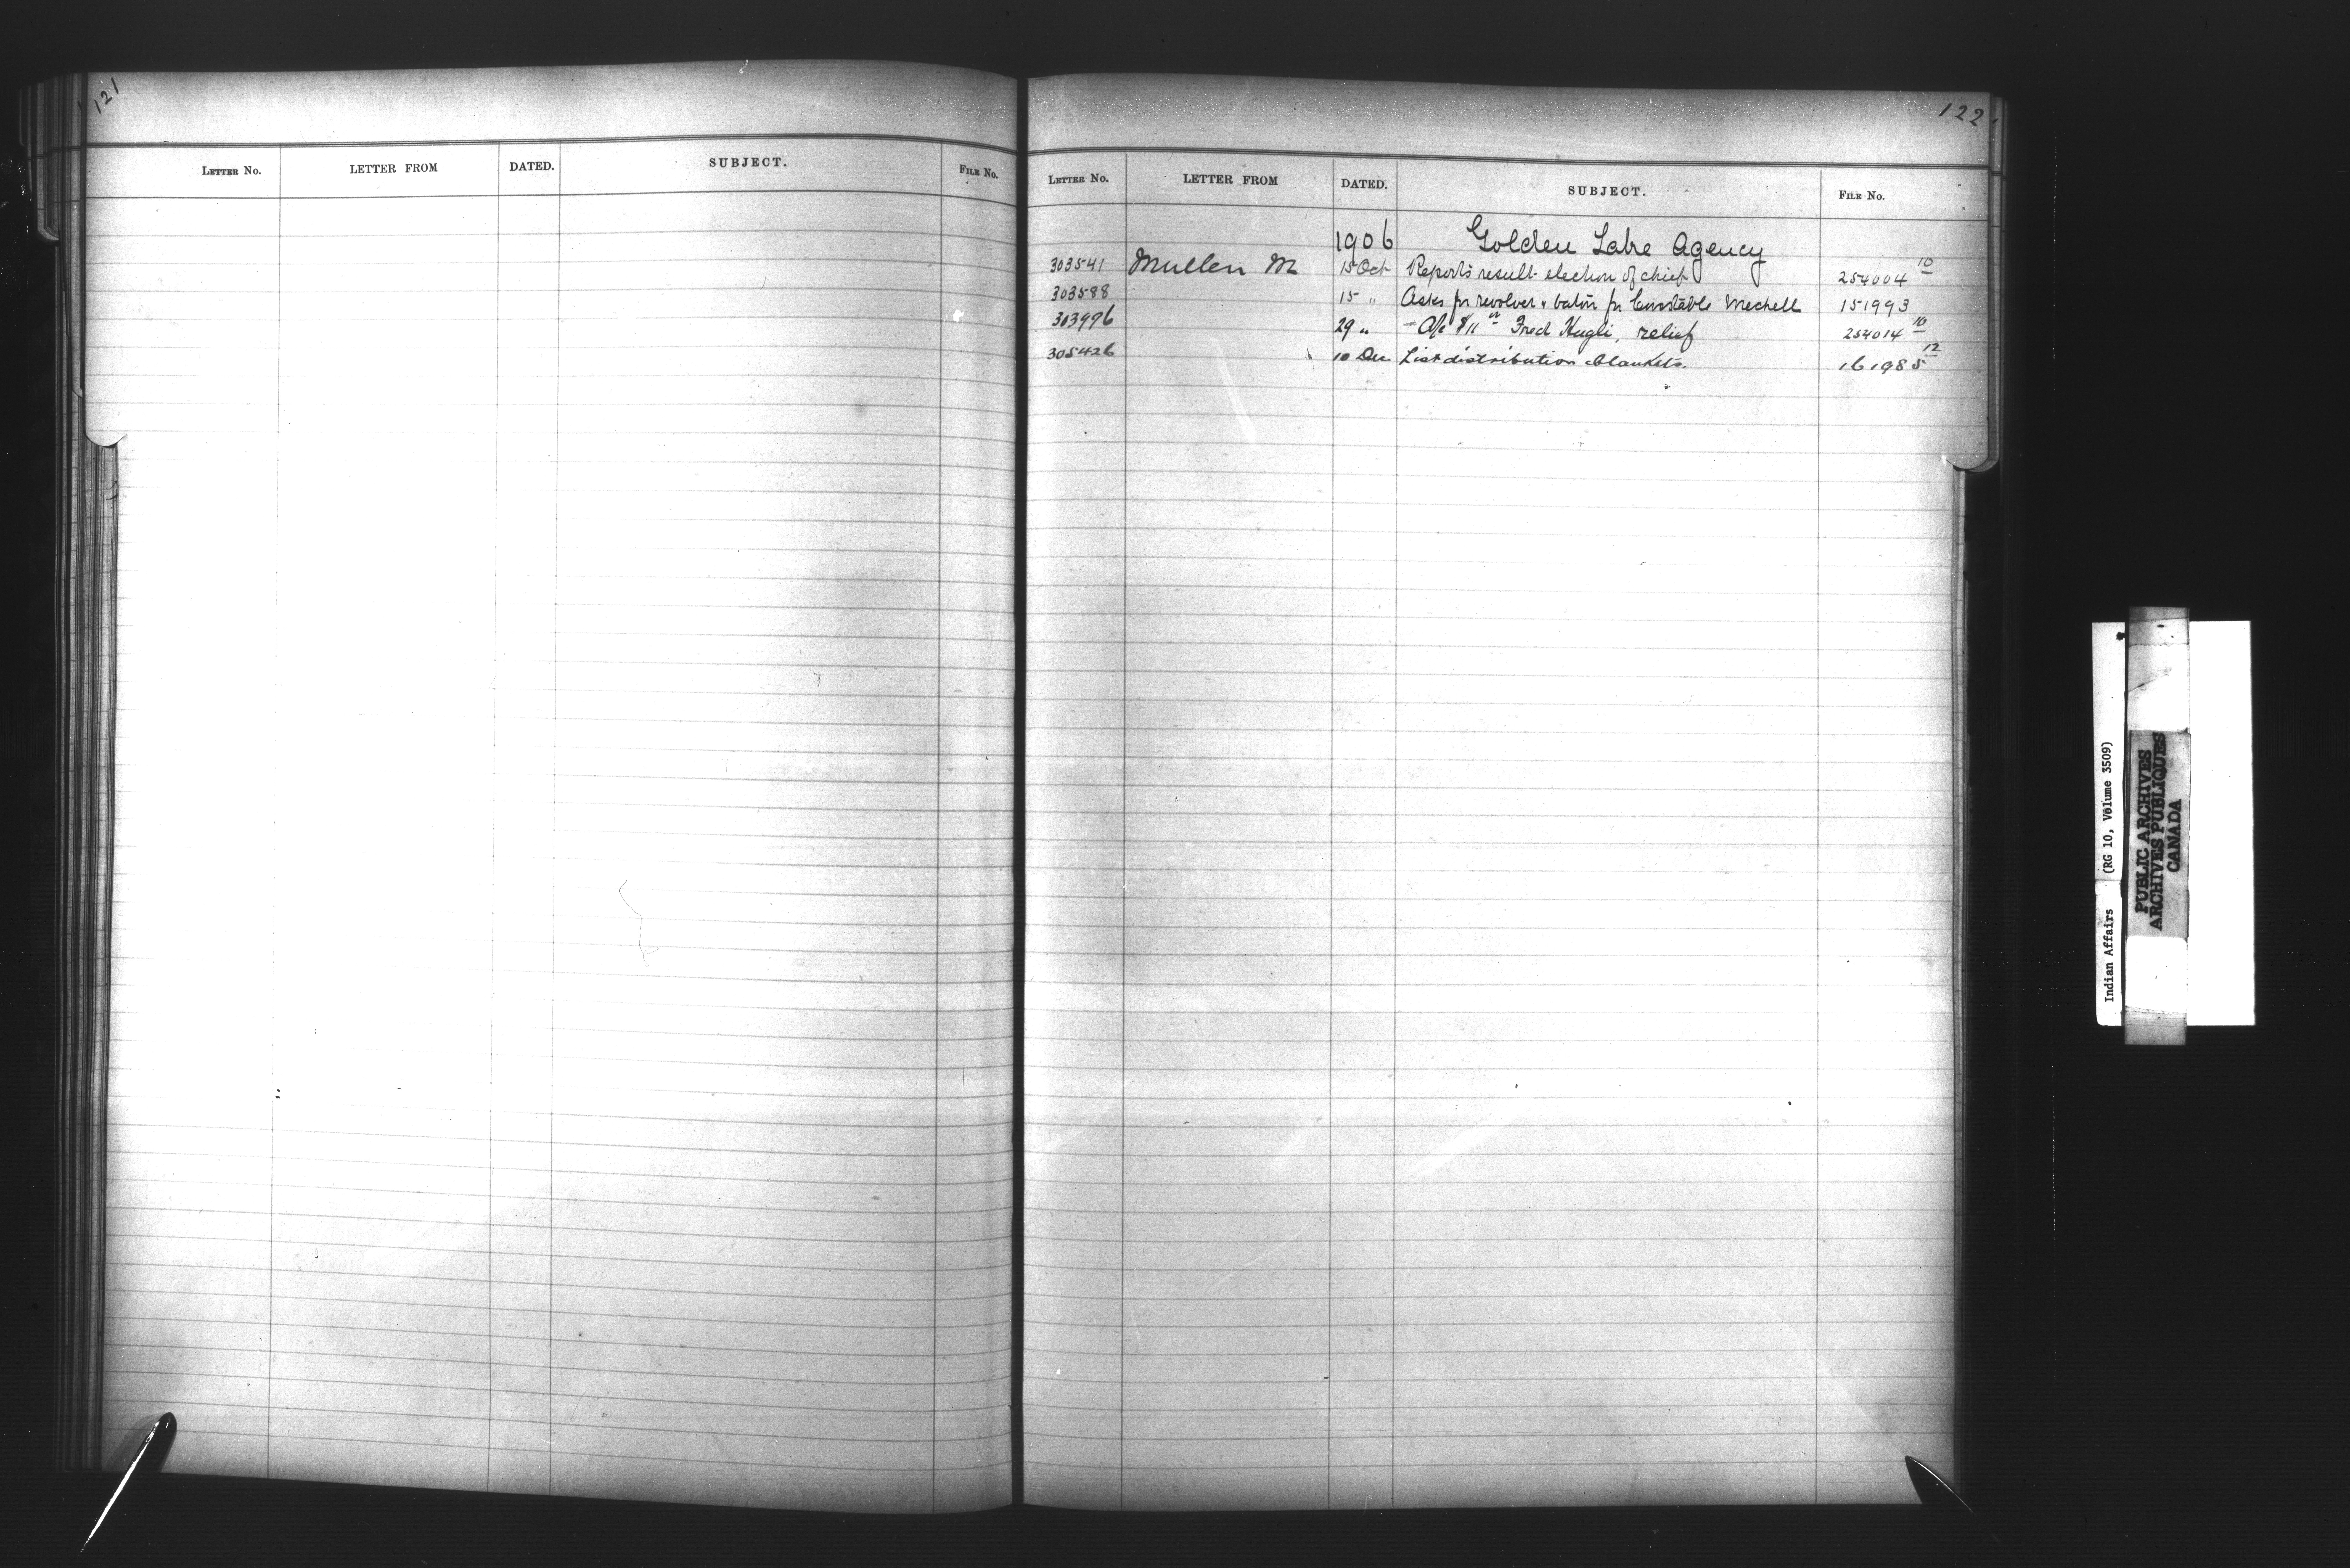 121
LETTER NO. LETTER FROM DATED. SUBJECT. FILE NO.
122
LETTER NO. LETTER FROM DATED. SUBJECT. FILE NO.
1906 Golden Lake Agency
303541 Mullen M 15 Oct Reports result election of chief 254004 10
303588 15 " Asks for revolver & baton for Constable Mechell 151993
303996 29 " - A/c $11 Fred Hugli, relief 254014 10
305426 10 Dec List distribution blankets. 161985 12
Indian Affairs (RG 10, Volume 3509)
PUBLIC ARCHIVES
ARCHIVES PUBLIQUES
CANADA